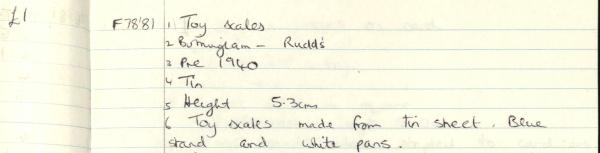 £1
F78'81 1 Toy scales
2 Birmingham - Rudds
3 Pre 1940
4 Tin
5 Height 5.3cm
6 Toy scales made from tin sheet. Blue
stand and white pans.